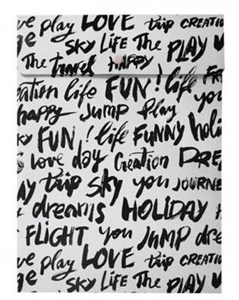 ge play LOVE trip CREATION
SKY LIFE The PLAY
The travel HAPPY
Creation life FUN! life FR
happy jump play
KY FUN! life FUNNY holi
S Love day Creation DRE
AY trip SKY you JOURNE
dreams HOLIDAY
FLIGHT you JUMP dre
ge play LOVE trip CREATION
SKY LIFE The PLAY